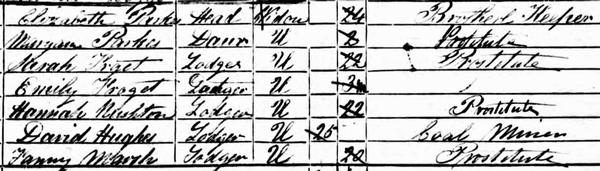 Elizabeth Parkes Head Widow 24 Brothel Keeper
Parkes Daur U 2 Prostitute
Sarah Froget Lodger U 22 Prostitute
Emily Froget Lodger U
Hannah Lodger U 22 Prostitute
David Hughes Lodger U 25 Coal Miner
Fanny Marsh Lodger U 20 Prostitute